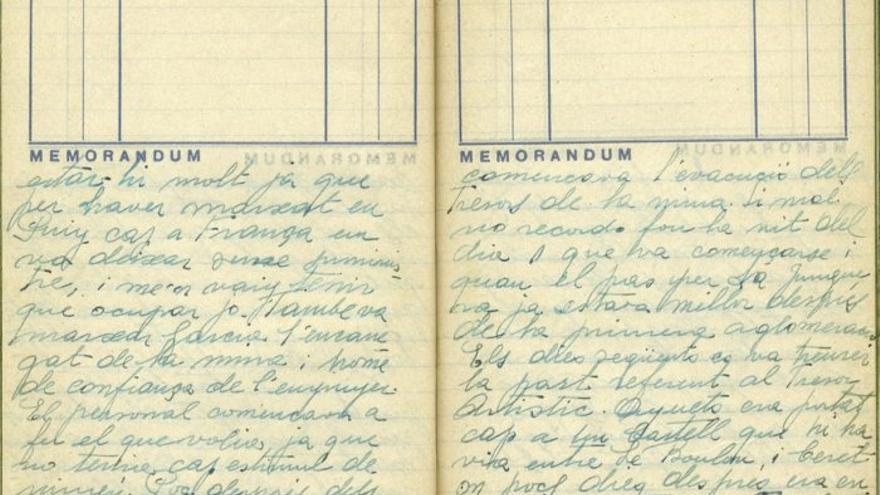 MEMORANDUM
estar-hi molt ja que
per haver marxat en
Puig cap a França em
va deixar sense suminis-
tre, i me'n vaig tenir
que ocupar jo. També va
marxar Garcia l'encarre-
gat de la mina i home
de confiança de l'enginyer.
El personal començava a
fer el que volia, ja que
no tenia cap estimul de
ningú. Poc després dels
MEMORANDUM
començava l'evacució dels
tresors de la mina. Si mal
no recordo fou la nit del
dia 1 que va començarse i
quan el pas per La Junque-
ra ja estava millor després
de la primera aglomeració
Els dies següents es va treure
la part referent al Tresor
Artistic. Aquets era portat
cap a un Castell que hi ha-
via entre Le Boulou i Ceret
on pocs dies després era en